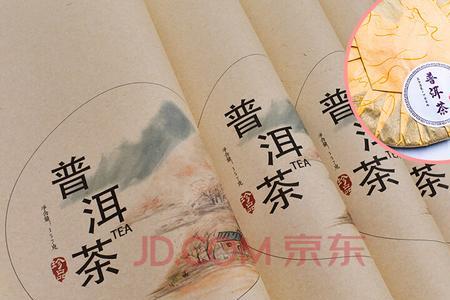 普洱茶
TEA
净含量:357克
珍品
普洱茶
TEA
净含量:357克
珍品
普洱茶
珍品
普洱茶
普洱茶
JD.COM 京东